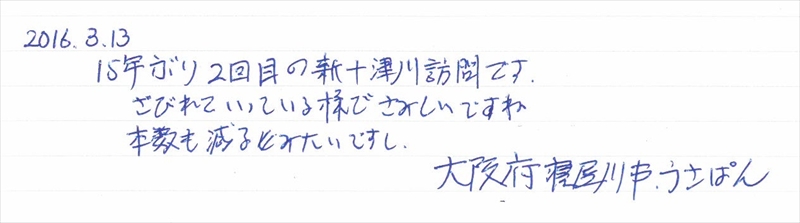 2016.3.13
15年ぶり2回目の新十津川訪問です.
さびれていっている様でさみしいですね
本数も減るみたいですし.
大阪府寝屋川市.うさぱん